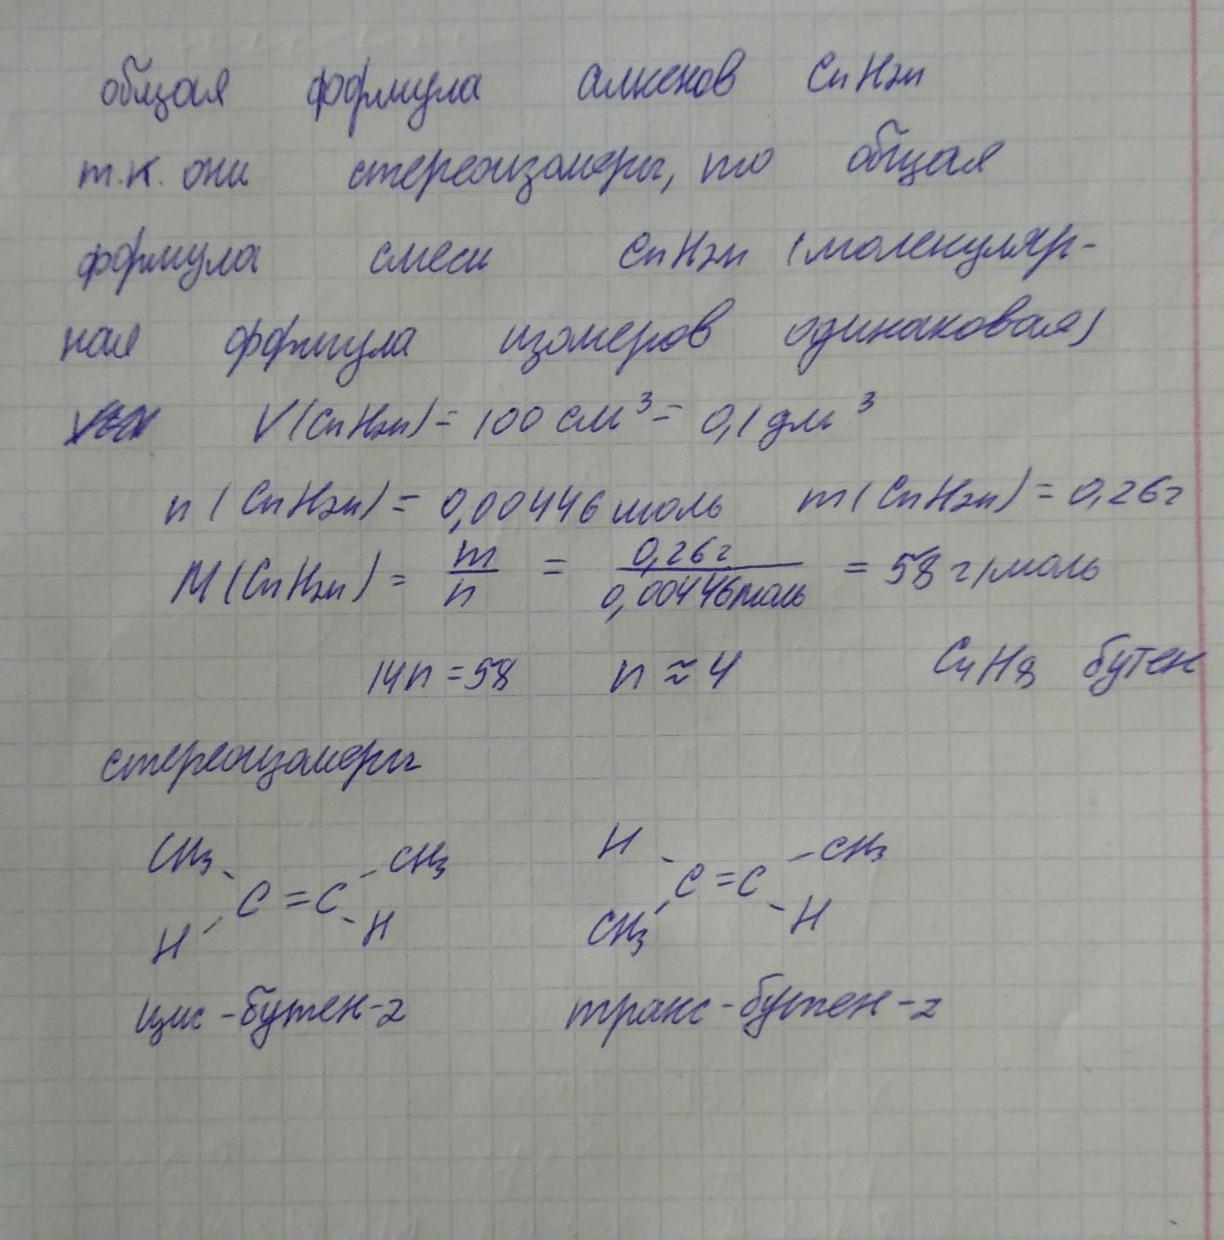 общая формула алкенов CnH2n
т.к. они стереоизомеры, то общая
формула смеси CnH2n (молекуляр-
ная формула изомеров одинаковая)
V(CnH2n) = 100 см³ = 0,1 дм³
n(CnH2n) = 0,00446 моль m(CnH2n) = 0,26г
M(CnH2n) = m/n = 0,26г/0,00446моль = 58 г/моль
14n = 58 n ≈ 4 C4H8 бутен
стереоизомеры
CH3 CH3 H CH3
C = C C = C
H H CH3 H
цис-бутен-2 транс-бутен-2